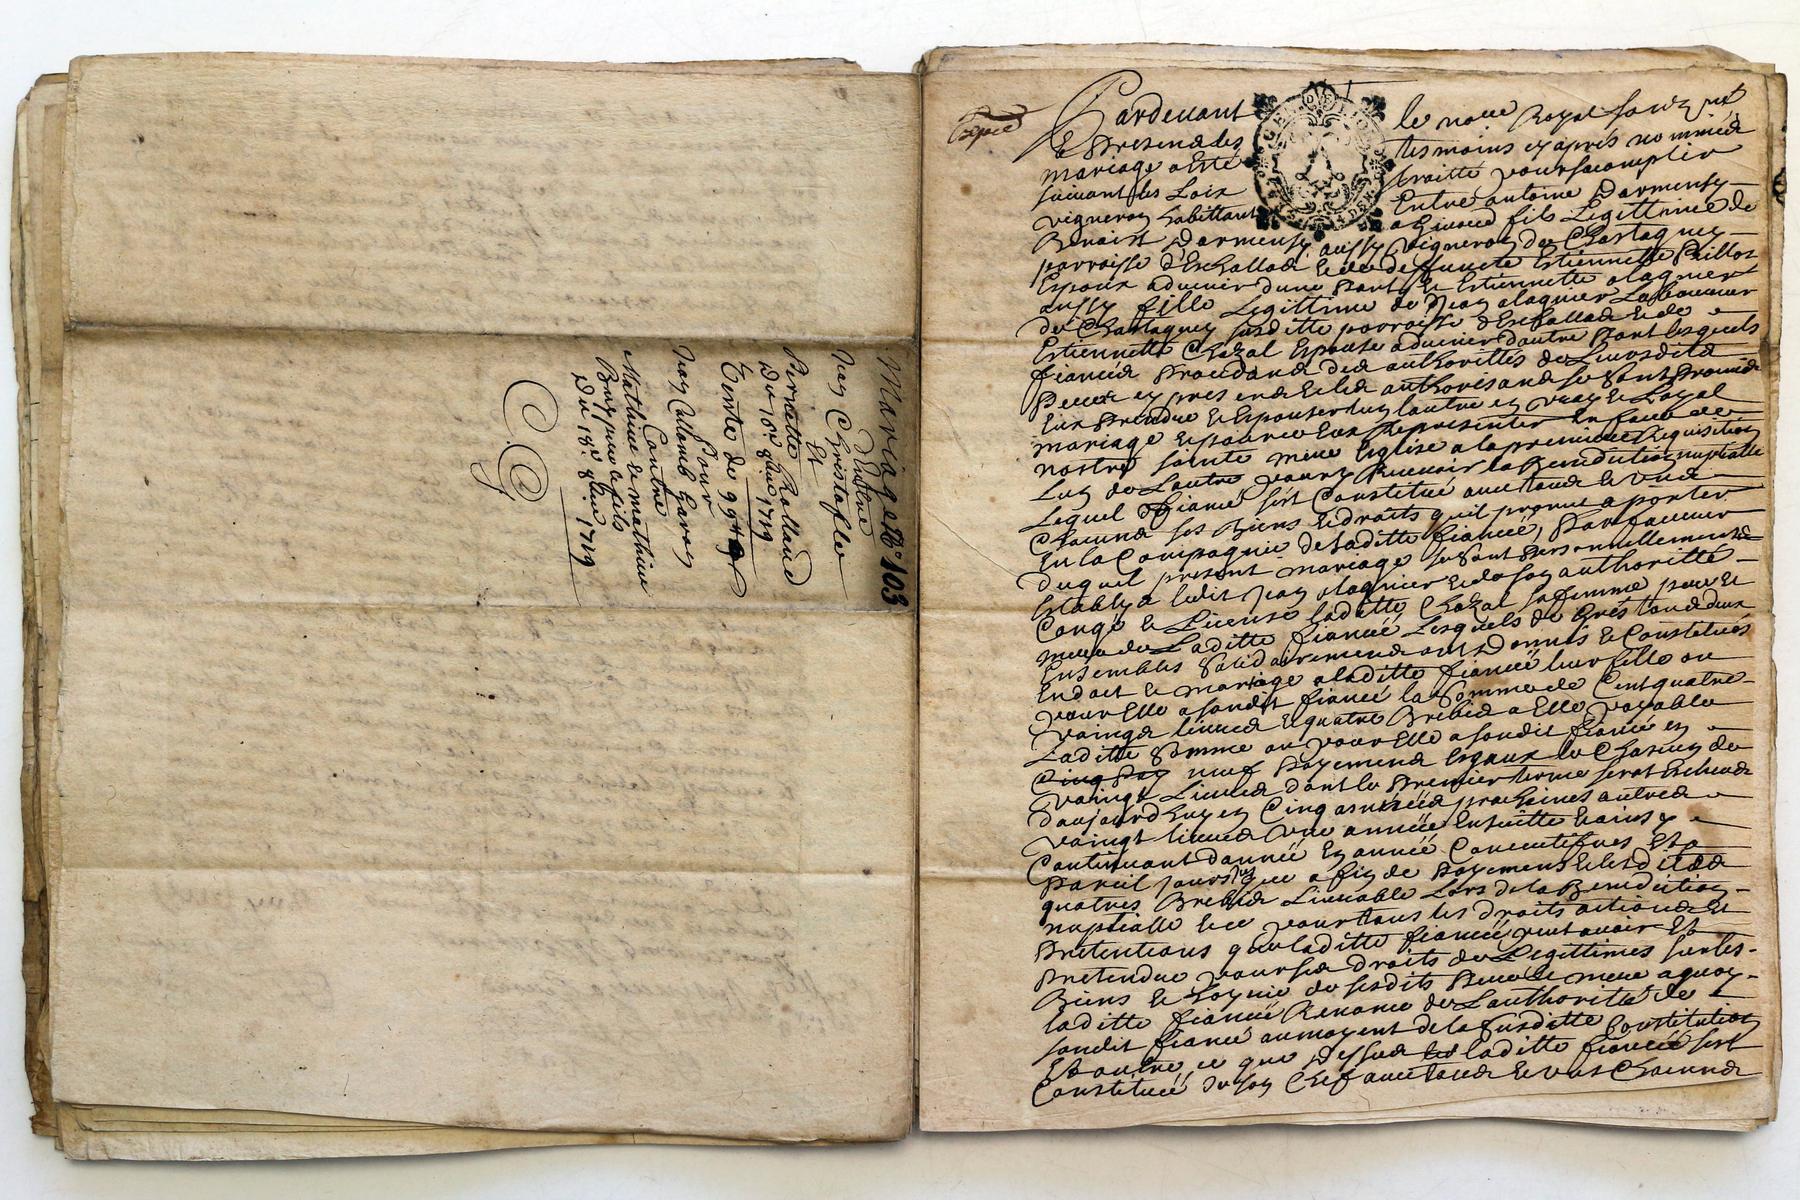 Mariage N° 103
D'entre
Jean Christofle
Et
Pierrette Rolland
Du 16e 8bre 1719
Pour
Jean Collomb Garon
Contre
Mathieu et mathieu
Bruy pere et fils
Du 18e 8bre 1719
Copié
Pardevant le note Royal
Et Presence des tesmoins cy apres nommés
mariage a Esté traitté pour sacomplir
suivant les Loix Entre antoine Darmensy
vigneron habittant a Givord fils Legittime de
Benoist Darmensy aussy vigneron du Chastagney
parroisse d'Eschallas et de deffuncte Estiennette
Espoux advenir d'une Part Et Estiennette alagnier
aussy fille Legittime de Jean alagnier Laboureur
du Chastagney susditte parroisse d'Eschallas et de
Estiennette Chazal Espouse advenir d'autre Part lesquels
fiancés Procedans des authorittés de Leursdits
Peres cy presens et les authorisans se sont Promis
Eux Prendre et Espouser l'un lautre en vray et Loyal
mariage et pource Eux Representer En face de
nostre sainte mere Eglise a la premiere Requisition
Lun de Lautre pour y Recevoir la Benediction nuptialle
Lequel fiancé sest Constitué avec tous et uns
Chacuns ses Biens et droits qu'il promet aporter
En la Compagnie de laditte fiancée, Par faveur
duquel present mariage se sont Personnellement
Establys ledit Jean alagnier et de son authoritté
Congé et License laditte Chazal sa femme pere et
mere de Laditte fiancée Lesquels de Gres tous deux
Ensembles Solidairement ont donnés et Constitués
En dot et mariage a laditte fiancée leur fille ou
pour Elle a sondit fiancé la Somme de Cent quatre
vaingt livres et quatre Brebis a Elle payable
Laditte Somme ou pour Elle a sondit fiancé en
neuf Payemens Egaux de Chacun de
vaingt Livres dont le Premier terme serat Escheu
daujourdhuy en Cinq années prochaines autres
vaingt livres une année Ensuitte et ainsy
Continuant dannée En année Consecutifves Et a
Pareil jour jusque a fin de Payement et lesdites
quatres Brebis Livrable Lors de la Benediction
nuptialle et ce pour tous les droits actions Et
Pretentions que laditte fiancée peut avoir Et
Pretendre pour ses droits de Legittimes sur les
Biens et hoynie de sesdits Pere et mere a quoy
laditte fiancée Renonce de Lauthoritté de
sondit fiancé au moyent de la susditte Constitution
Et outre ce que dessus laditte fiancée sest
Constituée de son Chef avec tous et uns Chacuns